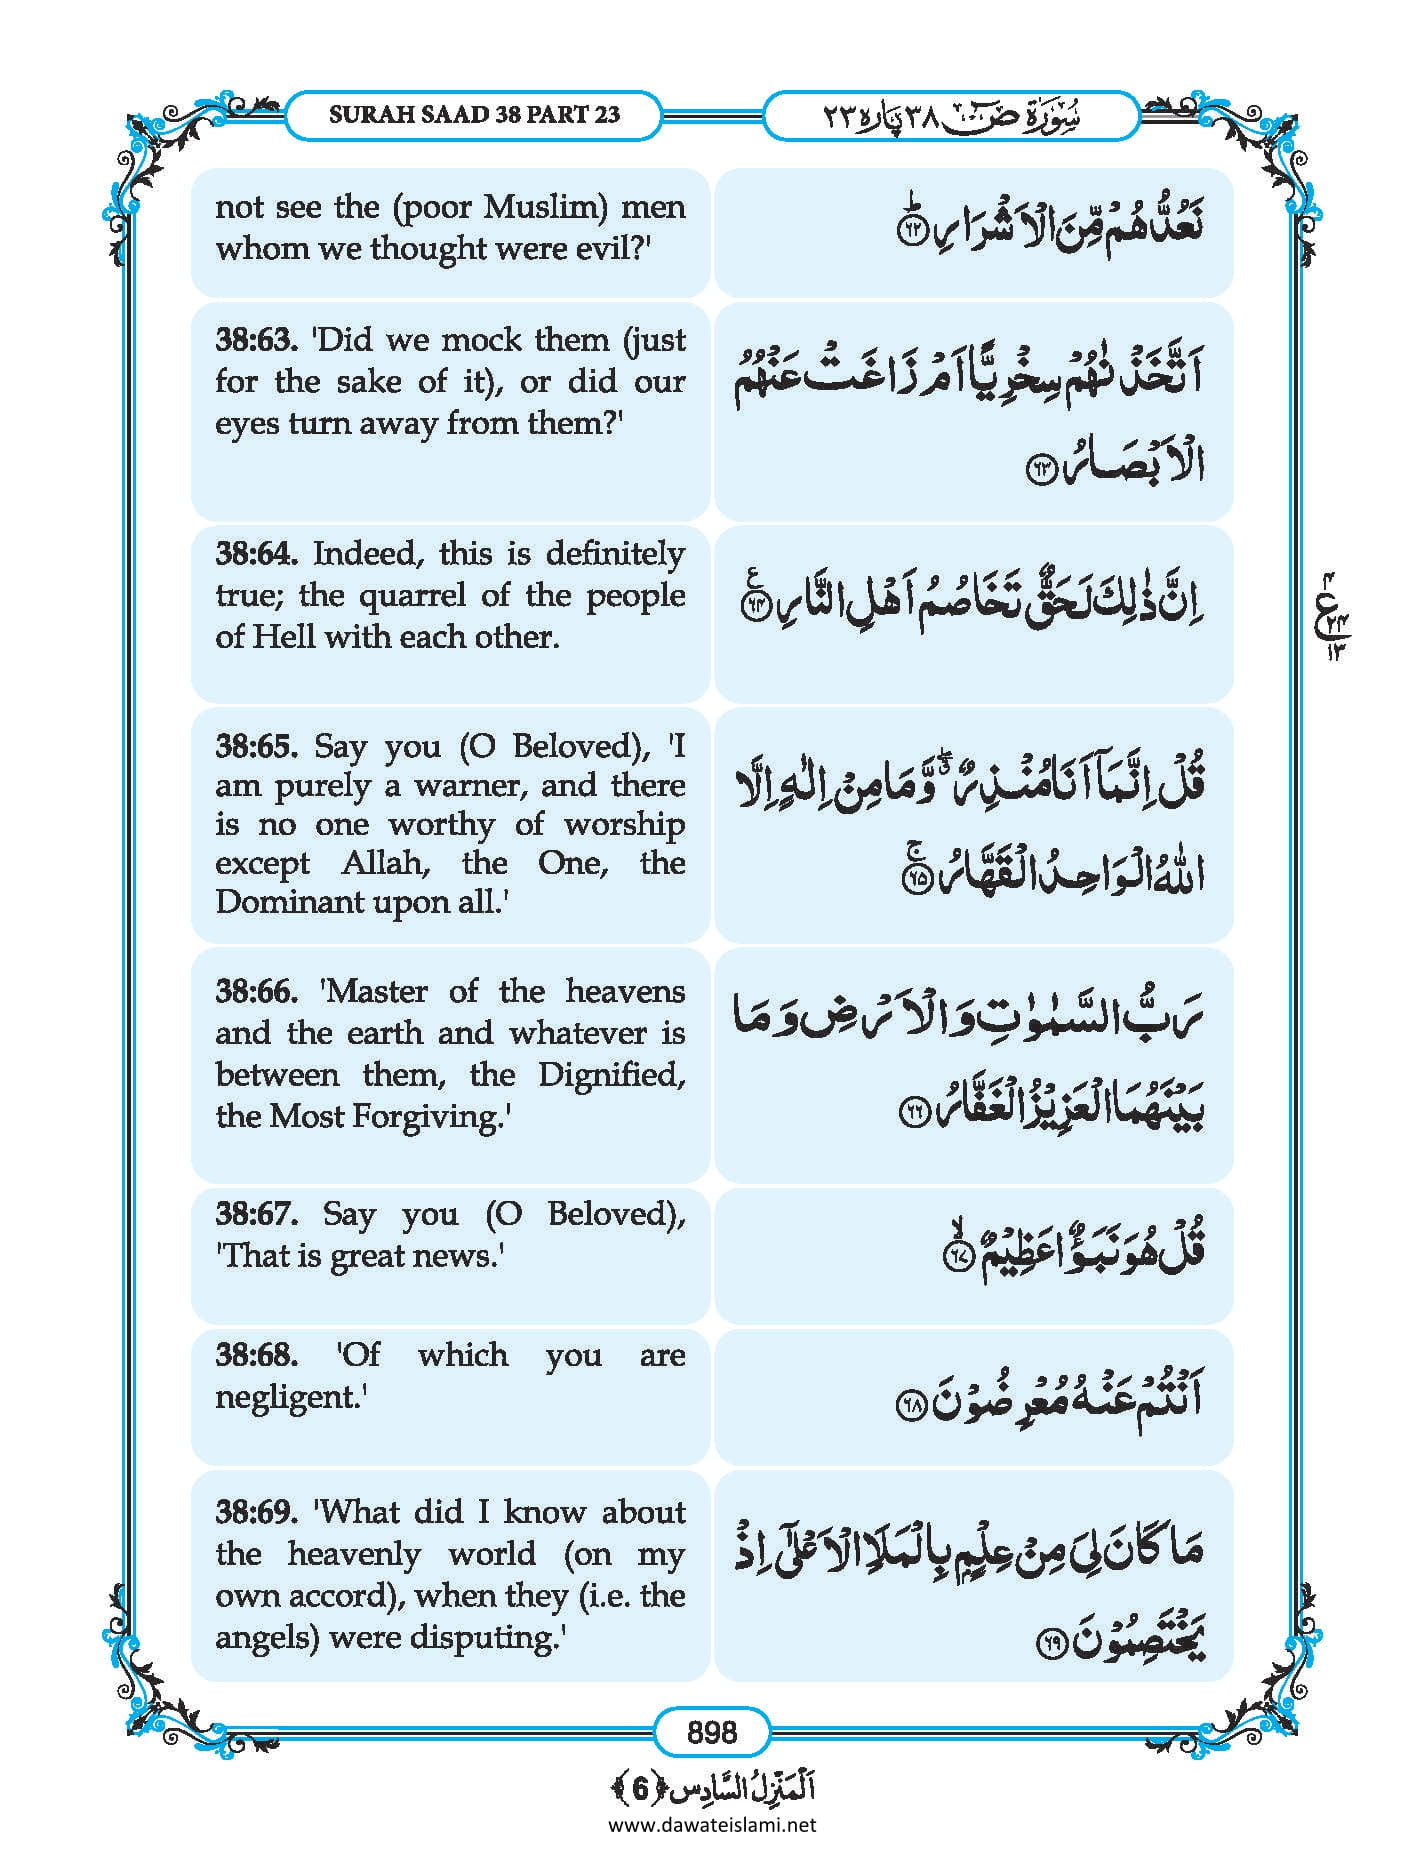 SURAH SAAD 38 PART 23
سُوۡرَۃُ صٓ ٣٨ پارہ ٢٣
not see the (poor Muslim) men
whom we thought were evil?'
نَعُدُّهُمۡ مِّنَ الۡاَشۡرَارِ ؕ ﴿٦٢﴾
38:63. 'Did we mock them (just
for the sake of it), or did our
eyes turn away from them?'
اَتَّخَذۡنٰهُمۡ سِخۡرِيًّا اَمۡ زَاغَتۡ عَنۡهُمُ
الۡاَبۡصَارُ ﴿٦٣﴾
38:64. Indeed, this is definitely
true; the quarrel of the people
of Hell with each other.
اِنَّ ذٰلِكَ لَحَقٌّ تَخَاصُمُ اَهۡلِ النَّارِ ﴿٦٤﴾ ع
٤
ع ٢٤
١٣
38:65. Say you (O Beloved), 'I
am purely a warner, and there
is no one worthy of worship
except Allah, the One, the
Dominant upon all.'
قُلۡ اِنَّمَاۤ اَنَا مُنۡذِرٌ ۖۗ وَّمَا مِنۡ اِلٰهٍ اِلَّا
اللّٰهُ الۡوَاحِدُ الۡقَهَّارُ ۚ ﴿٦٥﴾
38:66. 'Master of the heavens
and the earth and whatever is
between them, the Dignified,
the Most Forgiving.'
رَبُّ السَّمٰوٰتِ وَالۡاَرۡضِ وَمَا
بَيۡنَهُمَا الۡعَزِيۡزُ الۡغَفَّارُ ﴿٦٦﴾
38:67. Say you (O Beloved),
'That is great news.'
قُلۡ هُوَ نَبَؤٌا عَظِيۡمٌ ۙ ﴿٦٧﴾
38:68. 'Of which you are
negligent.'
اَنۡتُمۡ عَنۡهُ مُعۡرِضُوۡنَ ﴿٦٨﴾
38:69. 'What did I know about
the heavenly world (on my
own accord), when they (i.e. the
angels) were disputing.'
مَا كَانَ لِىَ مِنۡ عِلۡمٍۭ بِالۡمَلَاِ الۡاَعۡلٰٓى اِذۡ
يَخۡتَصِمُوۡنَ ﴿٦٩﴾
898
اَلۡمَنۡزِلُ السَّادِس ﴿6﴾
www.dawateislami.net